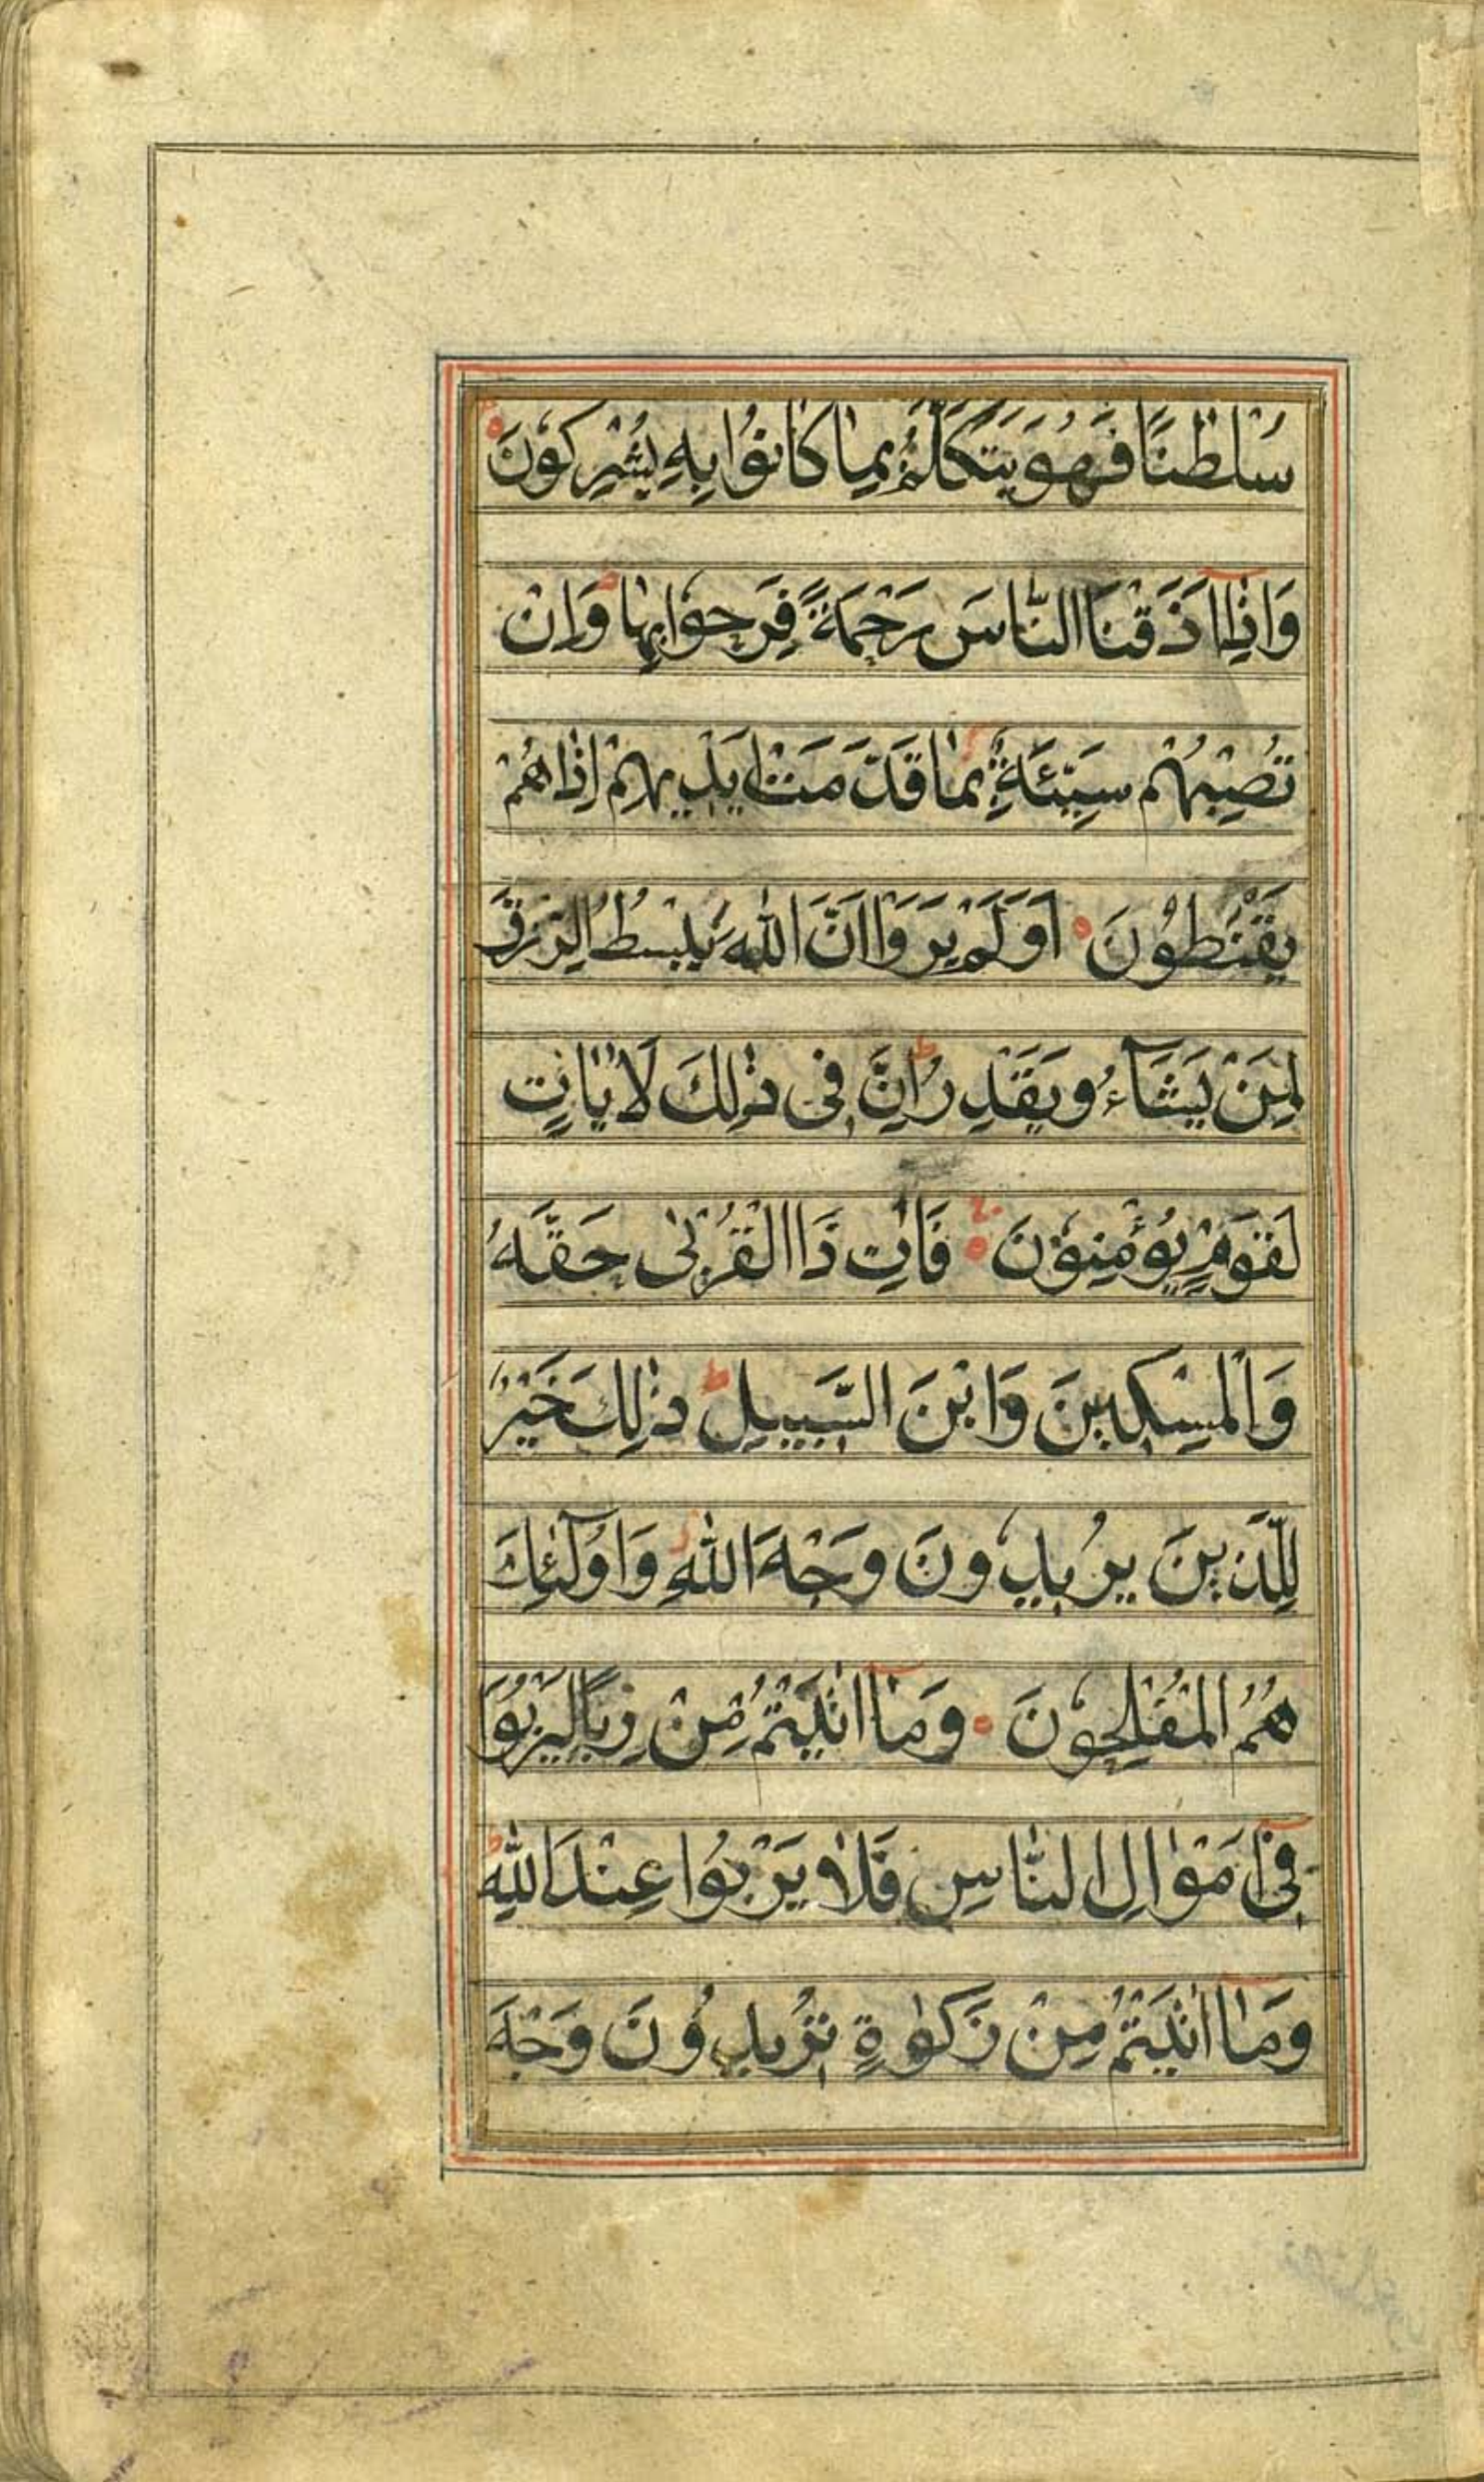 سُلْطٰنًا فَهُوَ يَتَكَلَّمُ بِمَا كَانُوْا بِهٖ يُشْرِكُوْنَ
وَاِذَا اَذَقْنَا النَّاسَ رَحْمَةً فَرِحُوْا بِهَا وَاِنْ
تُصِبْهُمْ سَيِّئَةٌ بِمَا قَدَّمَتْ اَيْدِيْهِمْ اِذَا هُمْ
يَقْنَطُوْنَ اَوَلَمْ يَرَوْا اَنَّ اللّٰهَ يَبْسُطُ الرِّزْقَ
لِمَنْ يَشَآءُ وَيَقْدِرُ اِنَّ فِى ذٰلِكَ لَاٰيَاتٍ
لِقَوْمٍ يُؤْمِنُوْنَ فَاٰتِ ذَا الْقُرْبٰى حَقَّهُ
وَالْمِسْكِيْنَ وَابْنَ السَّبِيْلِ ذٰلِكَ خَيْرٌ
لِلَّذِيْنَ يُرِيْدُوْنَ وَجْهَ اللّٰهِ وَاُولٰٓئِكَ
هُمُ الْمُفْلِحُوْنَ وَمَآ اٰتَيْتُمْ مِنْ رِبًا لِيَرْبُوَا
فِىْٓ اَمْوَالِ النَّاسِ فَلَا يَرْبُوْا عِنْدَ اللّٰهِ
وَمَآ اٰتَيْتُمْ مِنْ زَكٰوةٍ تُرِيْدُوْنَ وَجْهَ